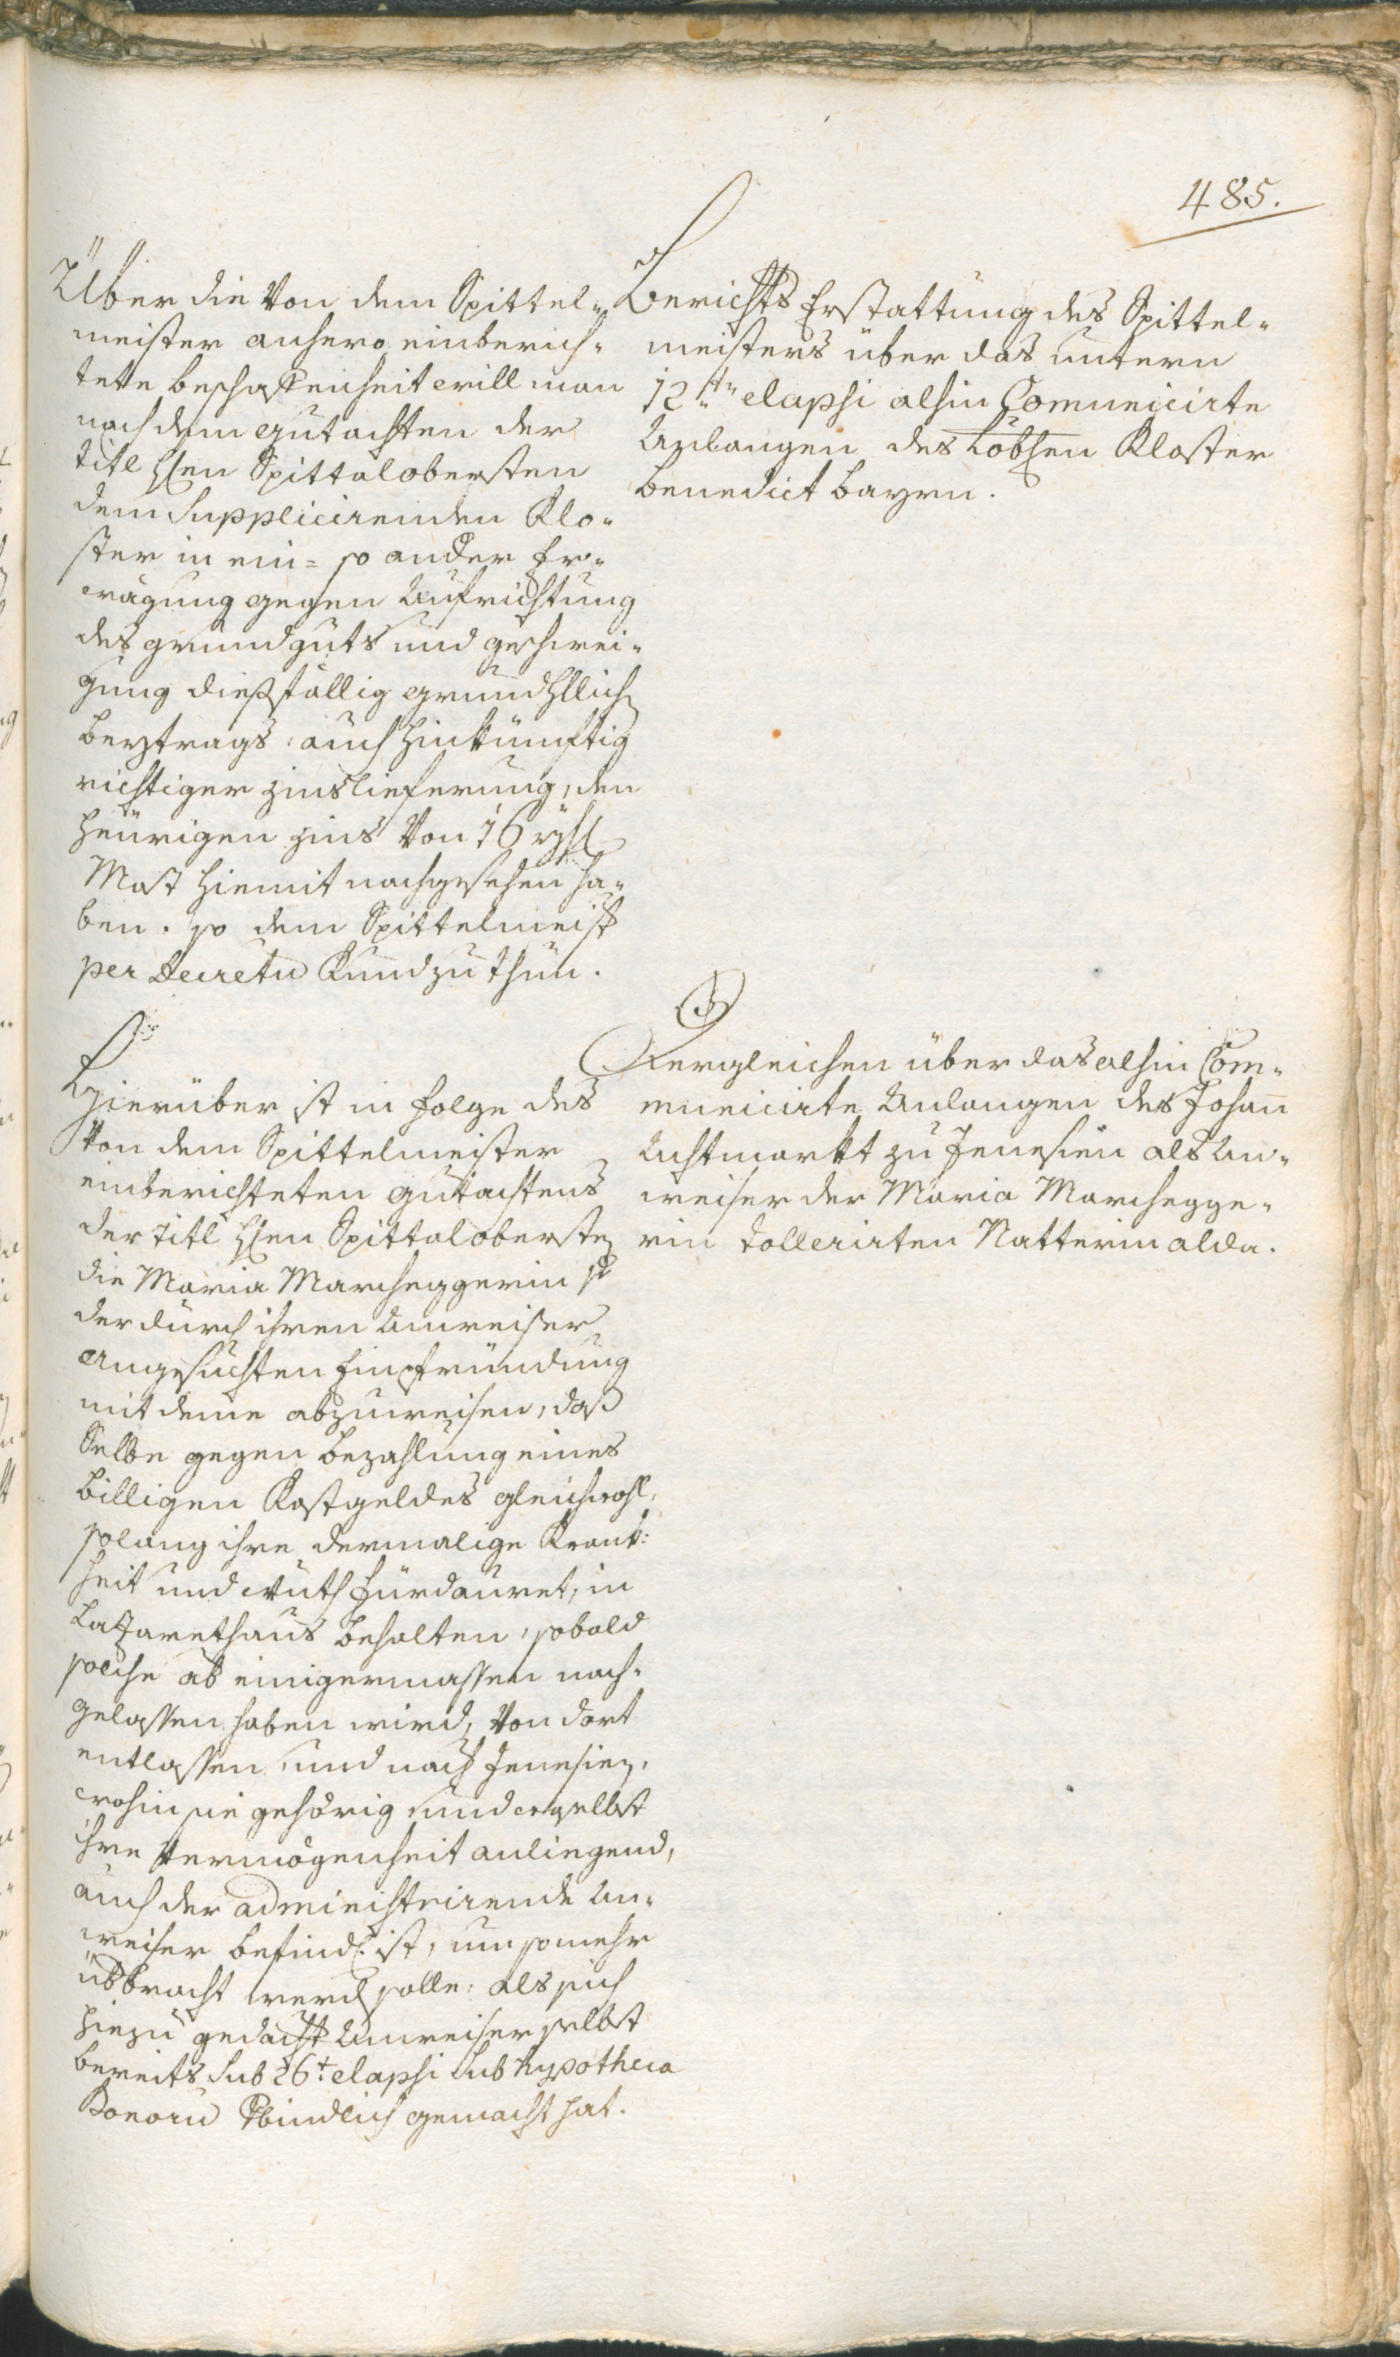 485.
Über die von dem Spittel-
meister anhero einberich-
tete beschaffenheit will man
nach dem gutachten der
titl H[er]en Spittalobersten
dem supplicirenden Klo-
ster in ein- so ander Er-
wägung gegen Aufrichtung
des grundguts und geschwei-
gung dießfällig
beytrags, auch hinkünftig
richtiger zinslieferung, den
heürigen zins von 16
Most hiemit nachgesehen ha-
ben. so dem Spittelmeist[er]
per Decretu[m] Kund zu thun.
Hierüber ist in folge des
von dem Spittelmeister
einberichteten gutachtens
der titl H[er]en Spittaloberste[n]
die Maria Marcheggerin
der durch ihren Anweiser
angesuchten Einpfründung
mit deme abzuweisen, daß
Selbe gegen bezahlung eines
billigen Kostgeldes gleichwohl,
solang ihre dermalige Krank-
heit und Wuth fürdauret, in
Lazarethaus behalten, sobald
solche ab einigermassen nach-
gelassen haben wird, von dort
entlassen, und nach Jenesien,
wohin sie gehörig und
ihre vermögenheit anliegend,
auch der administrirende An-
weiser befindl: ist, um so mehr
üb[er]bracht werd[en] solle, als sich
hiezu gedacht[er] Anweiser selbst
bereits sub 26t elapsi sub hypotheca
Bonoru[m] v[er]bindlich gemacht hat.
Berichts Erstattung des Spittel-
meisters über das untern
12ten elapsi alhin Comunicirte
Anlangen des Löbl[ich]en Kloster
Benedict bayrn.
Dergleichen über das alhin Com-
municirte Anlangen des Johann
Achtmarkt zu Jenesien als An-
weiser der Maria Marchegge-
rin tollerirten Natterin alda.